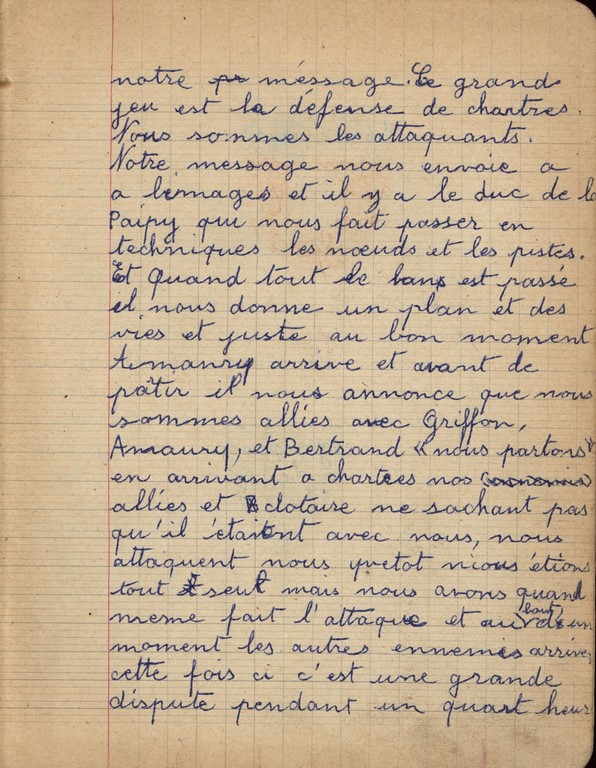 notre méssage. Le grand
jeu est la défense de chartres.
Nous sommes les attaquants.
Notre message nous envoie a
a limages et il y a le duc de la
Paipy qui nous fait passer en
techniques les nœuds et les pistes.
Et Quand tout le bans est passé
il nous donne un plan et des
vies et juste au bon moment
Amaury arrive et avant de
pârtir il nous annonce que nous
sommes alliés avec Griffon,
Amaury, et Bertrand « nous partons »
en arrivant a chartres nos
alliés et clotaire ne sachant pas
qu'il étaient avec nous, nous
attaquent nous yvetot nious étions
tout seul mais nous avons quand
meme fait l'attaque et au bout de un
moment les autres ennemis arrive,
cette fois ci c'est une grande
dispute pendant un quart heur